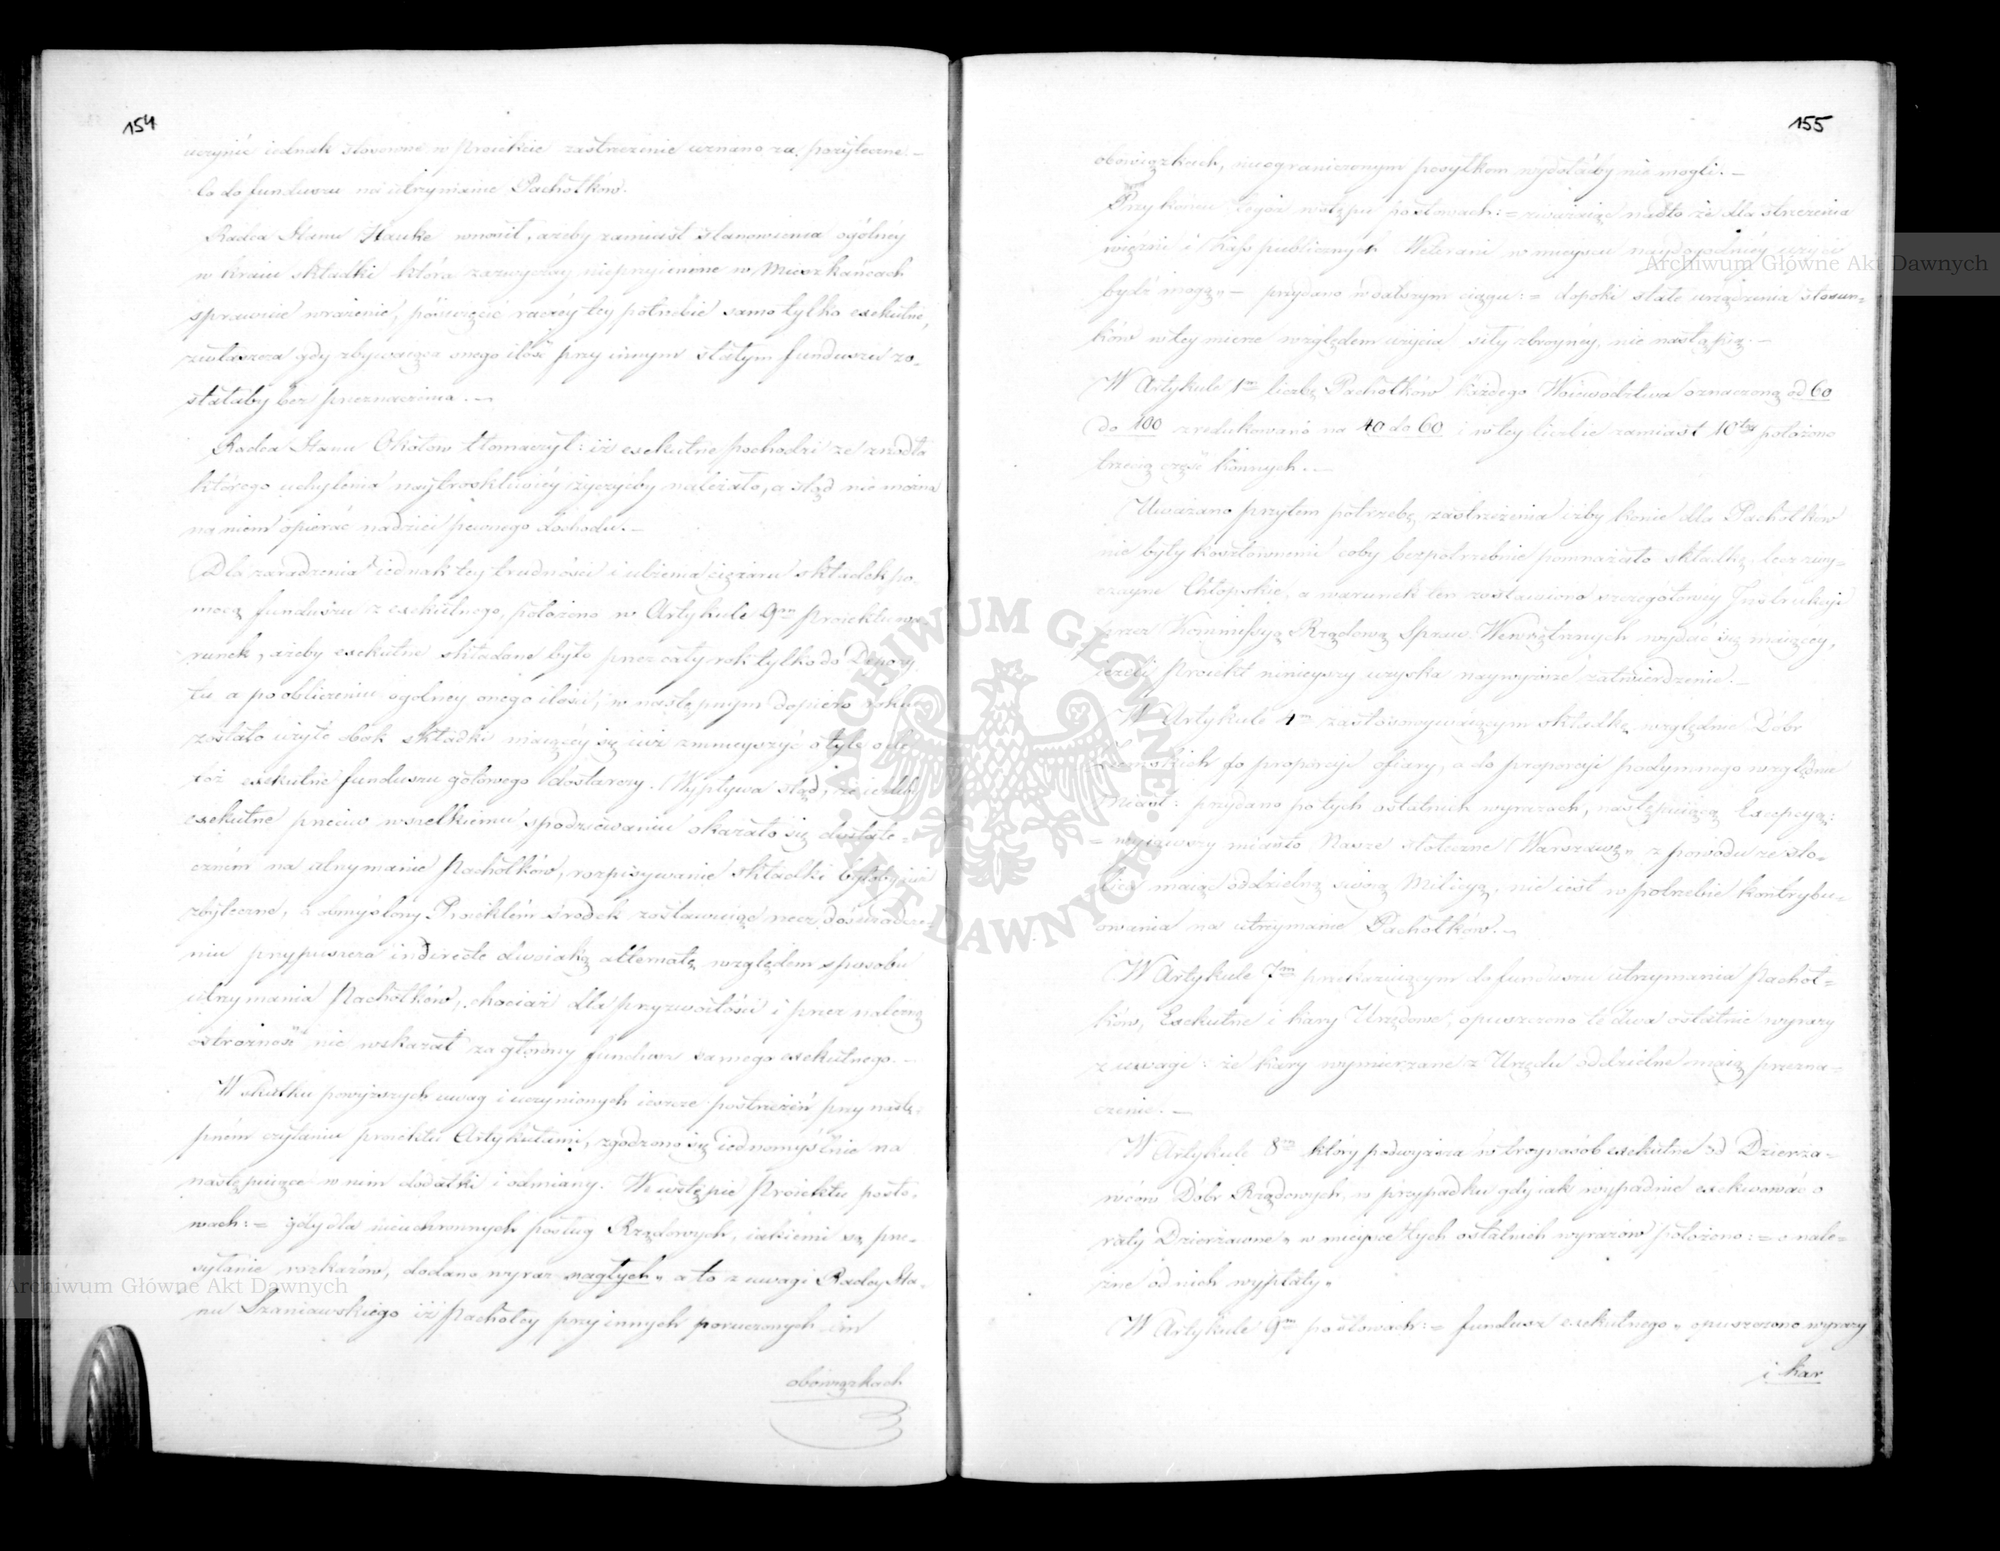 154
uczynić iednak stosowne w Proiekcie zastrzeżenie uznano za pożyteczne. –
Co do funduszu na utrzymanie Pachołków.
Radca Stanu Hauke wnosił, ażeby zamiast stanowienia ogólney
w kraiu składki która zazwyczay nieprzyiemne w Mieszkańcach
sprawuie wrażenie, poświęcić raczéy tey potrzebie samo tylko exekutne,
zwłaszcza gdy zbywaiąca onego ilość przy innym stałym funduszu zo-
stałaby bez przeznaczenia. –
Radca Stanu Okołow tłomaczył: iż exekutne pochodzi ze źrzodła
którego uchylenia naytroskliwiéy życzyćby należało, a stąd nie można
na niem opierać nadziei pewnego dochodu. –
Dla zaradzenia iednak tey trudności i ulżenia ciężaru składek po-
mocą funduszu exekutnego, położono w Artykule 9m Proiektu wa-
runek, ażeby exekutne składane było przez cały rok tylko do Depozy-
tu a po obliczeniu ogólney onego ilości, w następnym dopiero roku
zostało użyte obok składki maiącéy się iuż zmnieyszyć o tyle o ile
toż exekutne funduszu gotowego dostarczy. Wypływa stąd, że ieżeliby
exekutne przeciw wszelkiemu spodziéwaniu okazało się dostate-
czném na utrzymanie Pachołków, rozpisywanie składki byłoby iuż
zbyteczne, a obmyślony Proiektem środek zostawuiąc rzecz doświadcze-
niu przypuszcza indirecte dwoiaką alternatę względem sposobu
utrzymania Pachołków, chociaż dla przyzwoitości i przez należną
ostrożność nie wskazał za główny fundusz samego exekutnego. –
W skutku powyższych uwag i uczynionych ieszcze postrzeżeń przy nastę-
pném czytaniu proiektu Artykułami, zgodzono się iednomyślnie na
następuiące w nim dodatki i odmiany. We wstępie Proiektu po sło-
wach: = gdy dla nieuchronnych posług Rządowych, iakiemi są prze-
syłanie rozkazów, dodano wyraz nagłych„ a to z uwagi Radcy Sta-
nu Szaniawskiego iż Pachołcy przy innych poruczonych im
obowiązkach
155
obowiązkach, nieograniczonym posyłkom wydołaćby nie mogli. –
Przy końcu tegoż wstępu po słowach: = zważaiąc nadto że dla strzeżenia
więzni i Kass publicznych Weterani w mieyscu naydogodniéy użyci
bydź mogą„ – przydano w dalszym ciągu: = dopoki stałe urządzenia stosun-
ków w tey mierze względem użycia siły zbroyney, nie nastąpią. –
W Artykule 1m liczbę Pachołków każdego Woiewodztwa oznaczoną od 60
do 100 zredukowano na 40 do 60 i w tey liczbie zamiast 10tey położono
trzecią część konnych. –
Uważano przytem potrzebę zastrzeżenia iżby konie dla Pachołków
nie były kosztownemi coby bezpotrzebnie pomnażało składkę, lecz zwy-
czayne Chłopskie, a warunek ten zostawiono szczegółowéy Instrukcyi
przez Kommissyą Rządową Spraw Wewnętrznych wydać się maiącéy,
ieżeli Proiekt ninieyszy uzyska naywyższe zatwierdzenie. –
W Artykule 4m zastosowywaiącym składkę względnie Dóbr
Ziemskich do proporcyi ofiary, a do proporcyi podymnego względnie
Miast: przydano po tych ostatnich wyrazach, następuiącą Excepcyą:
= wyiąwszy miasto Nasze stołeczne Warszawę„ z powodu że sto-
lica maiąc oddzielną swoią Milicyą, nie iest w potrzebie kontrybu-
owania na utrzymanie Pachołków. –
W Artykule 7m przekazuiącym do funduszu utrzymania Pachoł-
ków, Exekutne i kary Urzędowe, opuszczono te dwa ostatnie wyrazy
z uwagi: że kary wymierzane z Urzędu oddzielne maią przezna-
czenie. –
W Artykule 8m który podwyższa w troynasób exekutne od Dzierża-
wców Dóbr Rządowych, w przypadku gdy iak wypadnie exekwować o
raty Dzierżawne„ w mieysce tych ostatnich wyrazów położono: = o nale-
żne od nich wypłaty„
W Artykule 9m po słowach: = fundusz exekutnego„ opuszczono wyrazy
i kar
Archiwum Główne Akt Dawnych
Archiwum Główne Akt Dawnych
ARCHIWUM GŁÓWNE AKT DAWNYCH